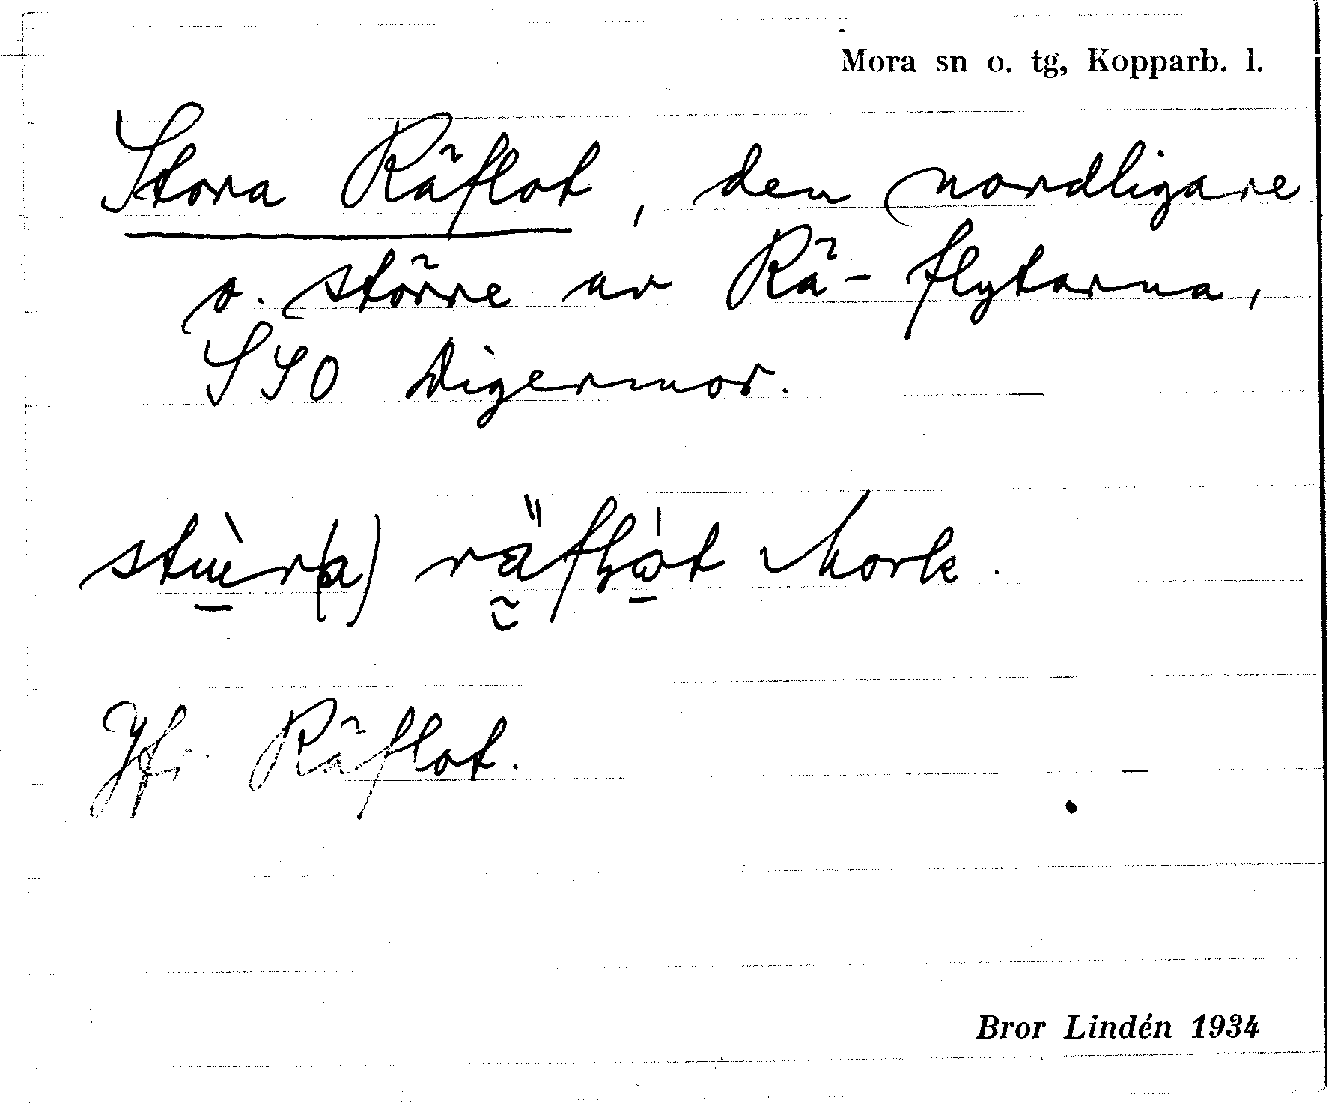 Mora sn o. tg, Kopparb. l.
Stora Räflot, den nordligare
o. större av Rä-flytarna,
SSO Digermor.
Mork.
Jfr Räflot.
Bror Lindén 1934